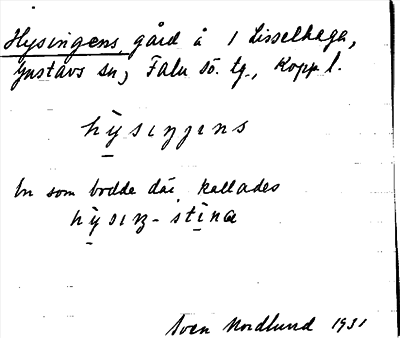 Hysingens, gård å 1 Lisselhaga,
Gustavs sn, Falu sö. tg., Kopp l.
hỳ̱sıŋŋens
En som bodde där kallades
hỳ̱sıŋ-sti̱na
Sven Nordlund 1931